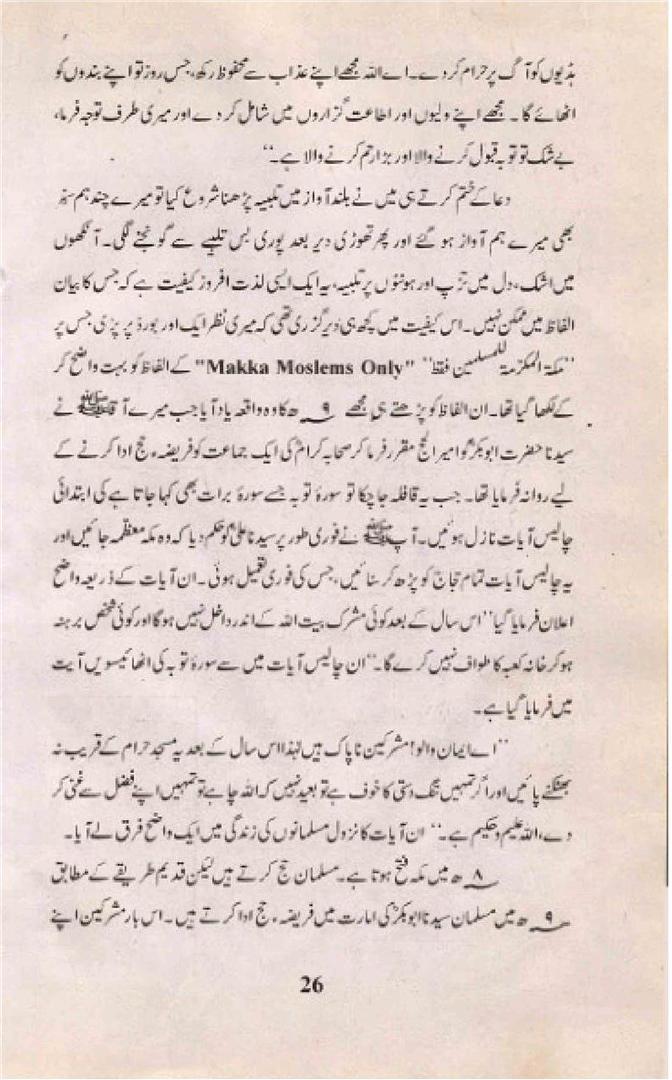 ہڈیوں کو آگ پر حرام کر دے۔ اے اللہ مجھے اپنے عذاب سے محفوظ رکھ، جس روز تو اپنے بندوں کو
اٹھائے گا۔ مجھے اپنے ولیوں اور اطاعت گزاروں میں شامل کر دے اور میری طرف توجہ فرما،
بے شک تو توبہ قبول کرنے والا اور بڑا رحم کرنے والا ہے۔‘‘
دعا کے ختم کرتے ہی میں نے بلند آواز میں تلبیہ پڑھنا شروع کیا تو میرے چند ہم سفر
بھی میرے ہم آواز ہو گئے اور پھر تھوڑی دیر بعد پوری بس تلبیے سے گونجنے لگی۔ آنکھوں
میں اشک، دل میں تڑپ اور ہونٹوں پر تلبیہ، یہ ایک ایسی لذت افروز کیفیت ہے کہ جس کا بیان
الفاظ میں ممکن نہیں۔ اس کیفیت میں کچھ ہی دیر گزری تھی کہ میری نظر ایک اور بورڈ پر پڑی جس پر
’’مکۃ المکرّمۃ للمسلمین فقط‘‘ "Makka Moslems Only" کے الفاظ کو بہت واضح کر
کے لکھا گیا تھا۔ ان الفاظ کو پڑھتے ہی مجھے ۹ھ کا وہ واقعہ یاد آیا جب میرے آقا ﷺ نے
سیدنا حضرت ابوبکرؓ کو امیر الحج مقرر فرما کر صحابہ کرامؓ کی ایک جماعت کو فریضہء حج ادا کرنے کے
لیے روانہ فرمایا تھا۔ جب یہ قافلہ جا چکا تو سورۂ توبہ جسے سورۂ برات بھی کہا جاتا ہے کی ابتدائی
چالیس آیات نازل ہوئیں۔ آپ ﷺ نے فوری طور پر سیدنا علیؓ کو حکم دیا کہ وہ مکہ معظمہ جائیں اور
یہ چالیس آیات تمام حجاج کو پڑھ کر سنائیں، جس کی فوری تعمیل ہوئی۔ ان آیات کے ذریعہ واضح
اعلان فرمایا گیا ’’اس سال کے بعد کوئی مشرک بیت اللہ کے اندر داخل نہیں ہوگا اور کوئی شخص برہنہ
ہو کر خانہ کعبہ کا طواف نہیں کرے گا۔‘‘ ان چالیس آیات میں سے سورۂ توبہ کی اٹھائیسویں آیت
میں فرمایا گیا ہے۔
’’اے ایمان والو! مشرکین ناپاک ہیں لہٰذا اس سال کے بعد یہ مسجد حرام کے قریب نہ
بھٹکنے پائیں اور اگر تمہیں تنگ دستی کا خوف ہے تو بعید نہیں کہ اللہ چاہے تو تمہیں اپنے فضل سے غنی کر
دے، اللہ علیم و حکیم ہے۔‘‘ ان آیات کا نزول مسلمانوں کی زندگی میں ایک واضح فرق لے آیا۔
۸ھ میں مکہ فتح ہوتا ہے۔ مسلمان حج کرتے ہیں لیکن قدیم طریقے کے مطابق
۹ھ میں مسلمان سیدنا ابوبکرؓ کی امارت میں فریضہء حج ادا کرتے ہیں۔ اس بار مشرکین اپنے
26